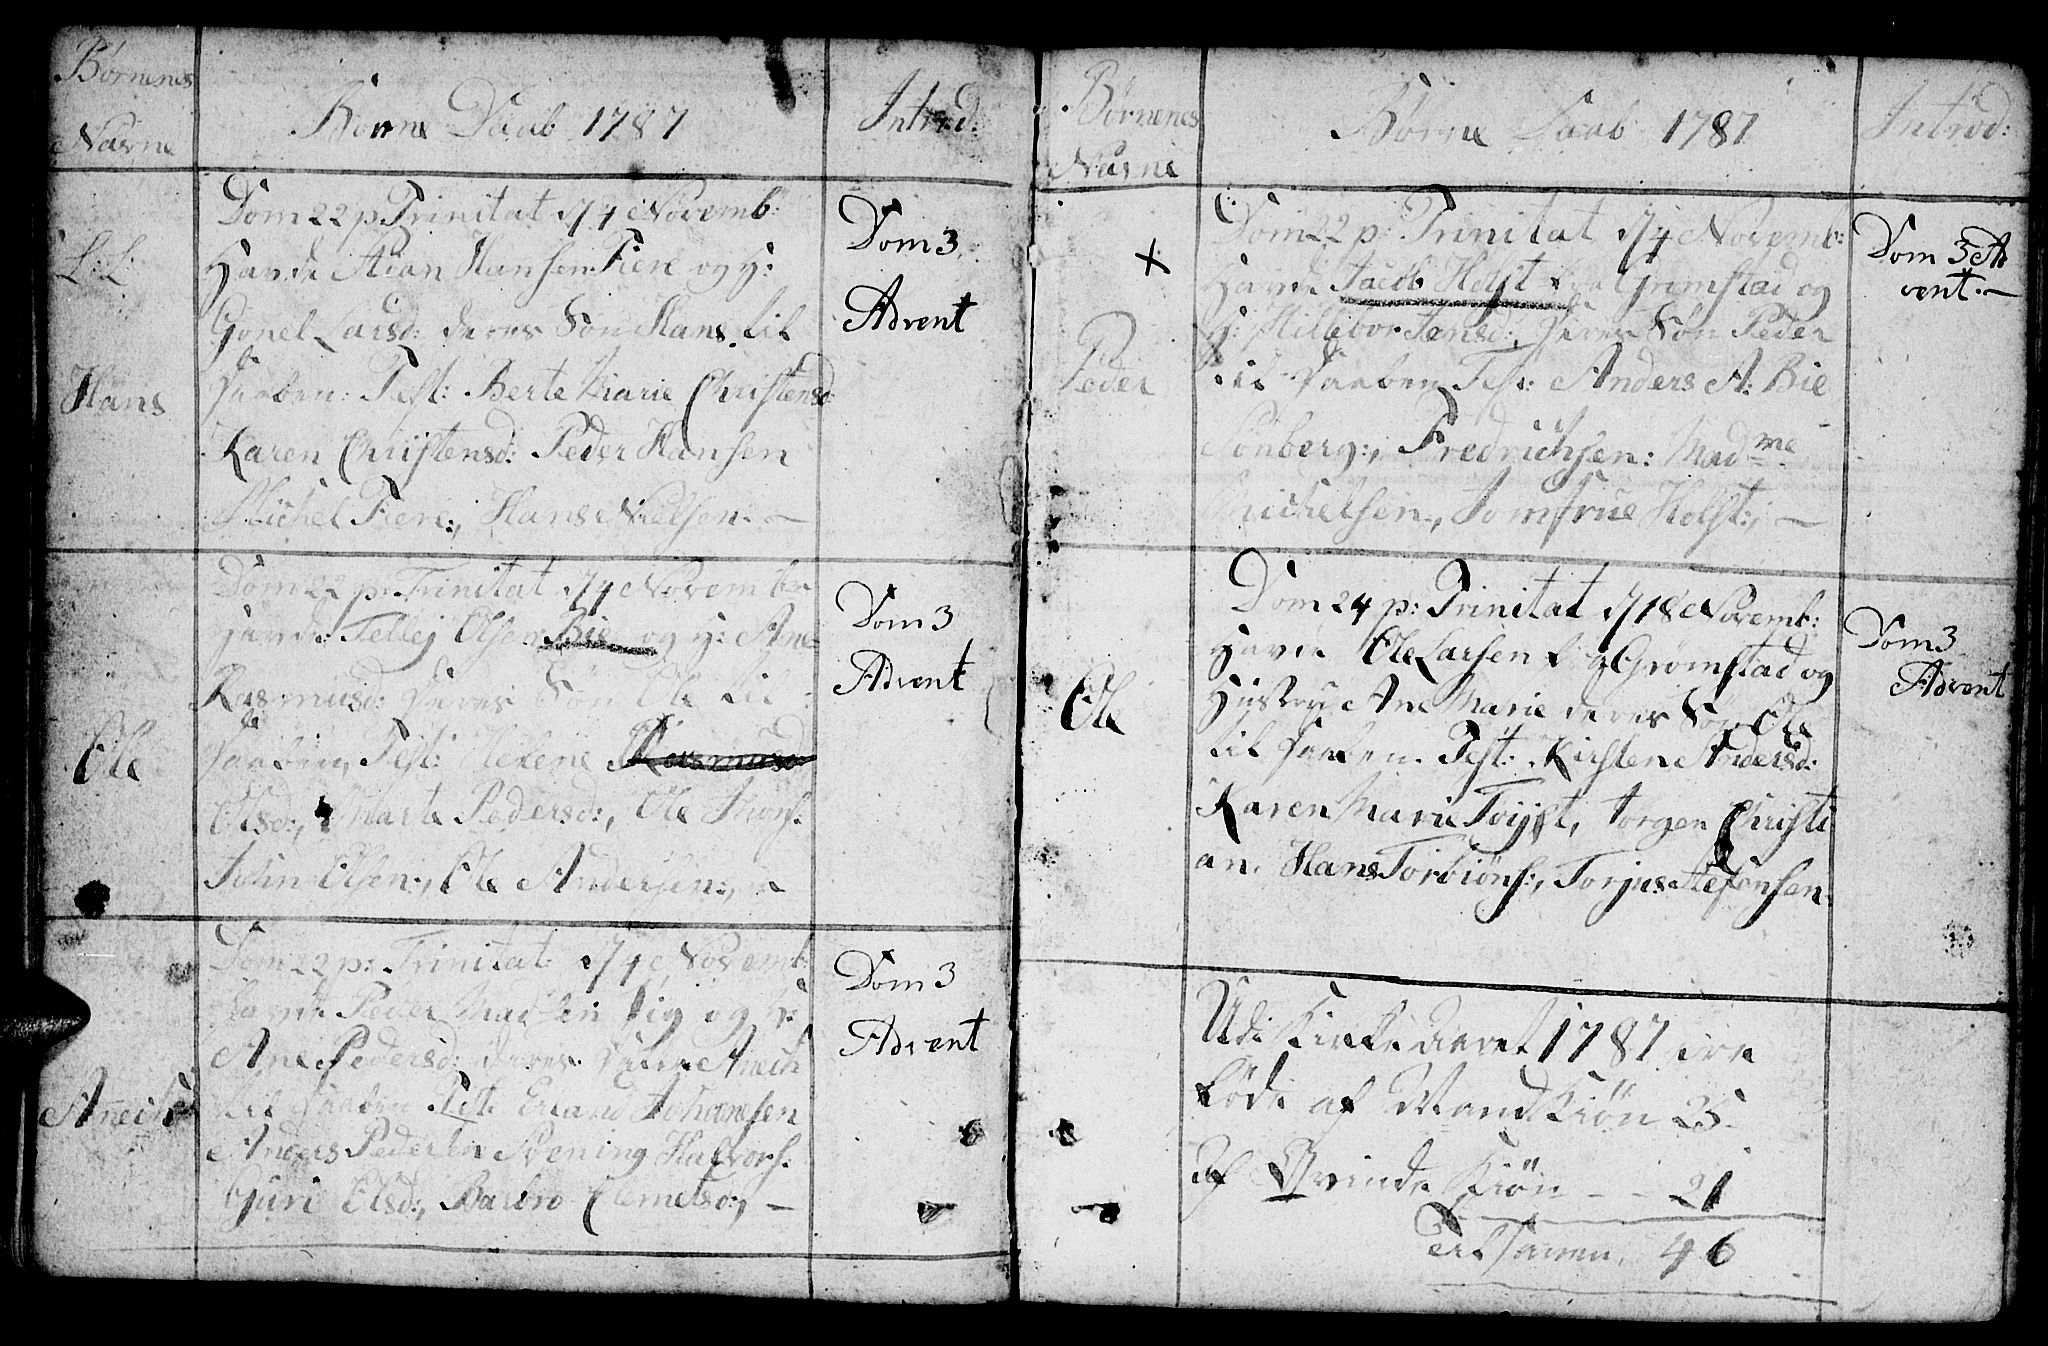 Børnenes
Navne
Børne Daab 1787
Introd:
L: L:
Hans
Dom 22 p: Trinitat d 4 Novemb:
Havde Hansen Fiere og H:
Gonel Larsd: deres Søn Hans til
Daaben: Test: Berte Marie Christensd
Karen Christensd: Peder Hansen
Michel Fiere:, Hans Nielsen. —
Dom 3
Advent
Ole
Dom 22 p: Trinitat d 4 Novembr
Havde Tellej Olsen Bie og H: Ane
Rasmusd: deres Søn Ole til
Daaben, Test: Helene Rasmusd
Olsd:, Marte Pedersd:, Ole
John Olsen:, Ole Andersen:,
Dom 3
Advent
Anech
Dom 22 p: Trinitat: d 4 Novemb:
Havde Peder Madsen og H:
Ane Pedersd: deres Anech
til Daaben Test. Erland Johansen
Anders Pedersen Svening Halvors.
Guri Olsd:, Barbro Clemetsd:, —
Dom 3
Advent
Børnenes
Navne
Børne Daab 1787
Introd:
Peder
Dom 22 p: Trinitat d 4 Novemb:
Havde Jacob Holst Grømstad og
H: Hillebor Jensd: deres Søn Peder
til Daaben Test: Anders A: Bie
Fredrichsen: Madme
Michelsen:, Jomfrue Holst:, —
Dom 3 Ad
vent. —
Ole
Dom 24 p: Trinitat d 18 Novemb:
Havde Ole Larsen Grømstad og
Hustru Ane Marie deres Søn Ole
til Daaben. Test: Kirsten Andersd:
Karen Marie Jorgen Christi
an. Hans Torbiøns:, Torjus Stefensen.
Dom 3
Advent
Udi Kirke Aaret 1787 ere
fødde af Mand Kiøn 25
Af Qvinde Kiøn - - 21
tilsamen, 46